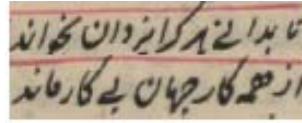 تا بدانے ہر کرا یزدان بخواند
از همه کار جهان بے کار ماند